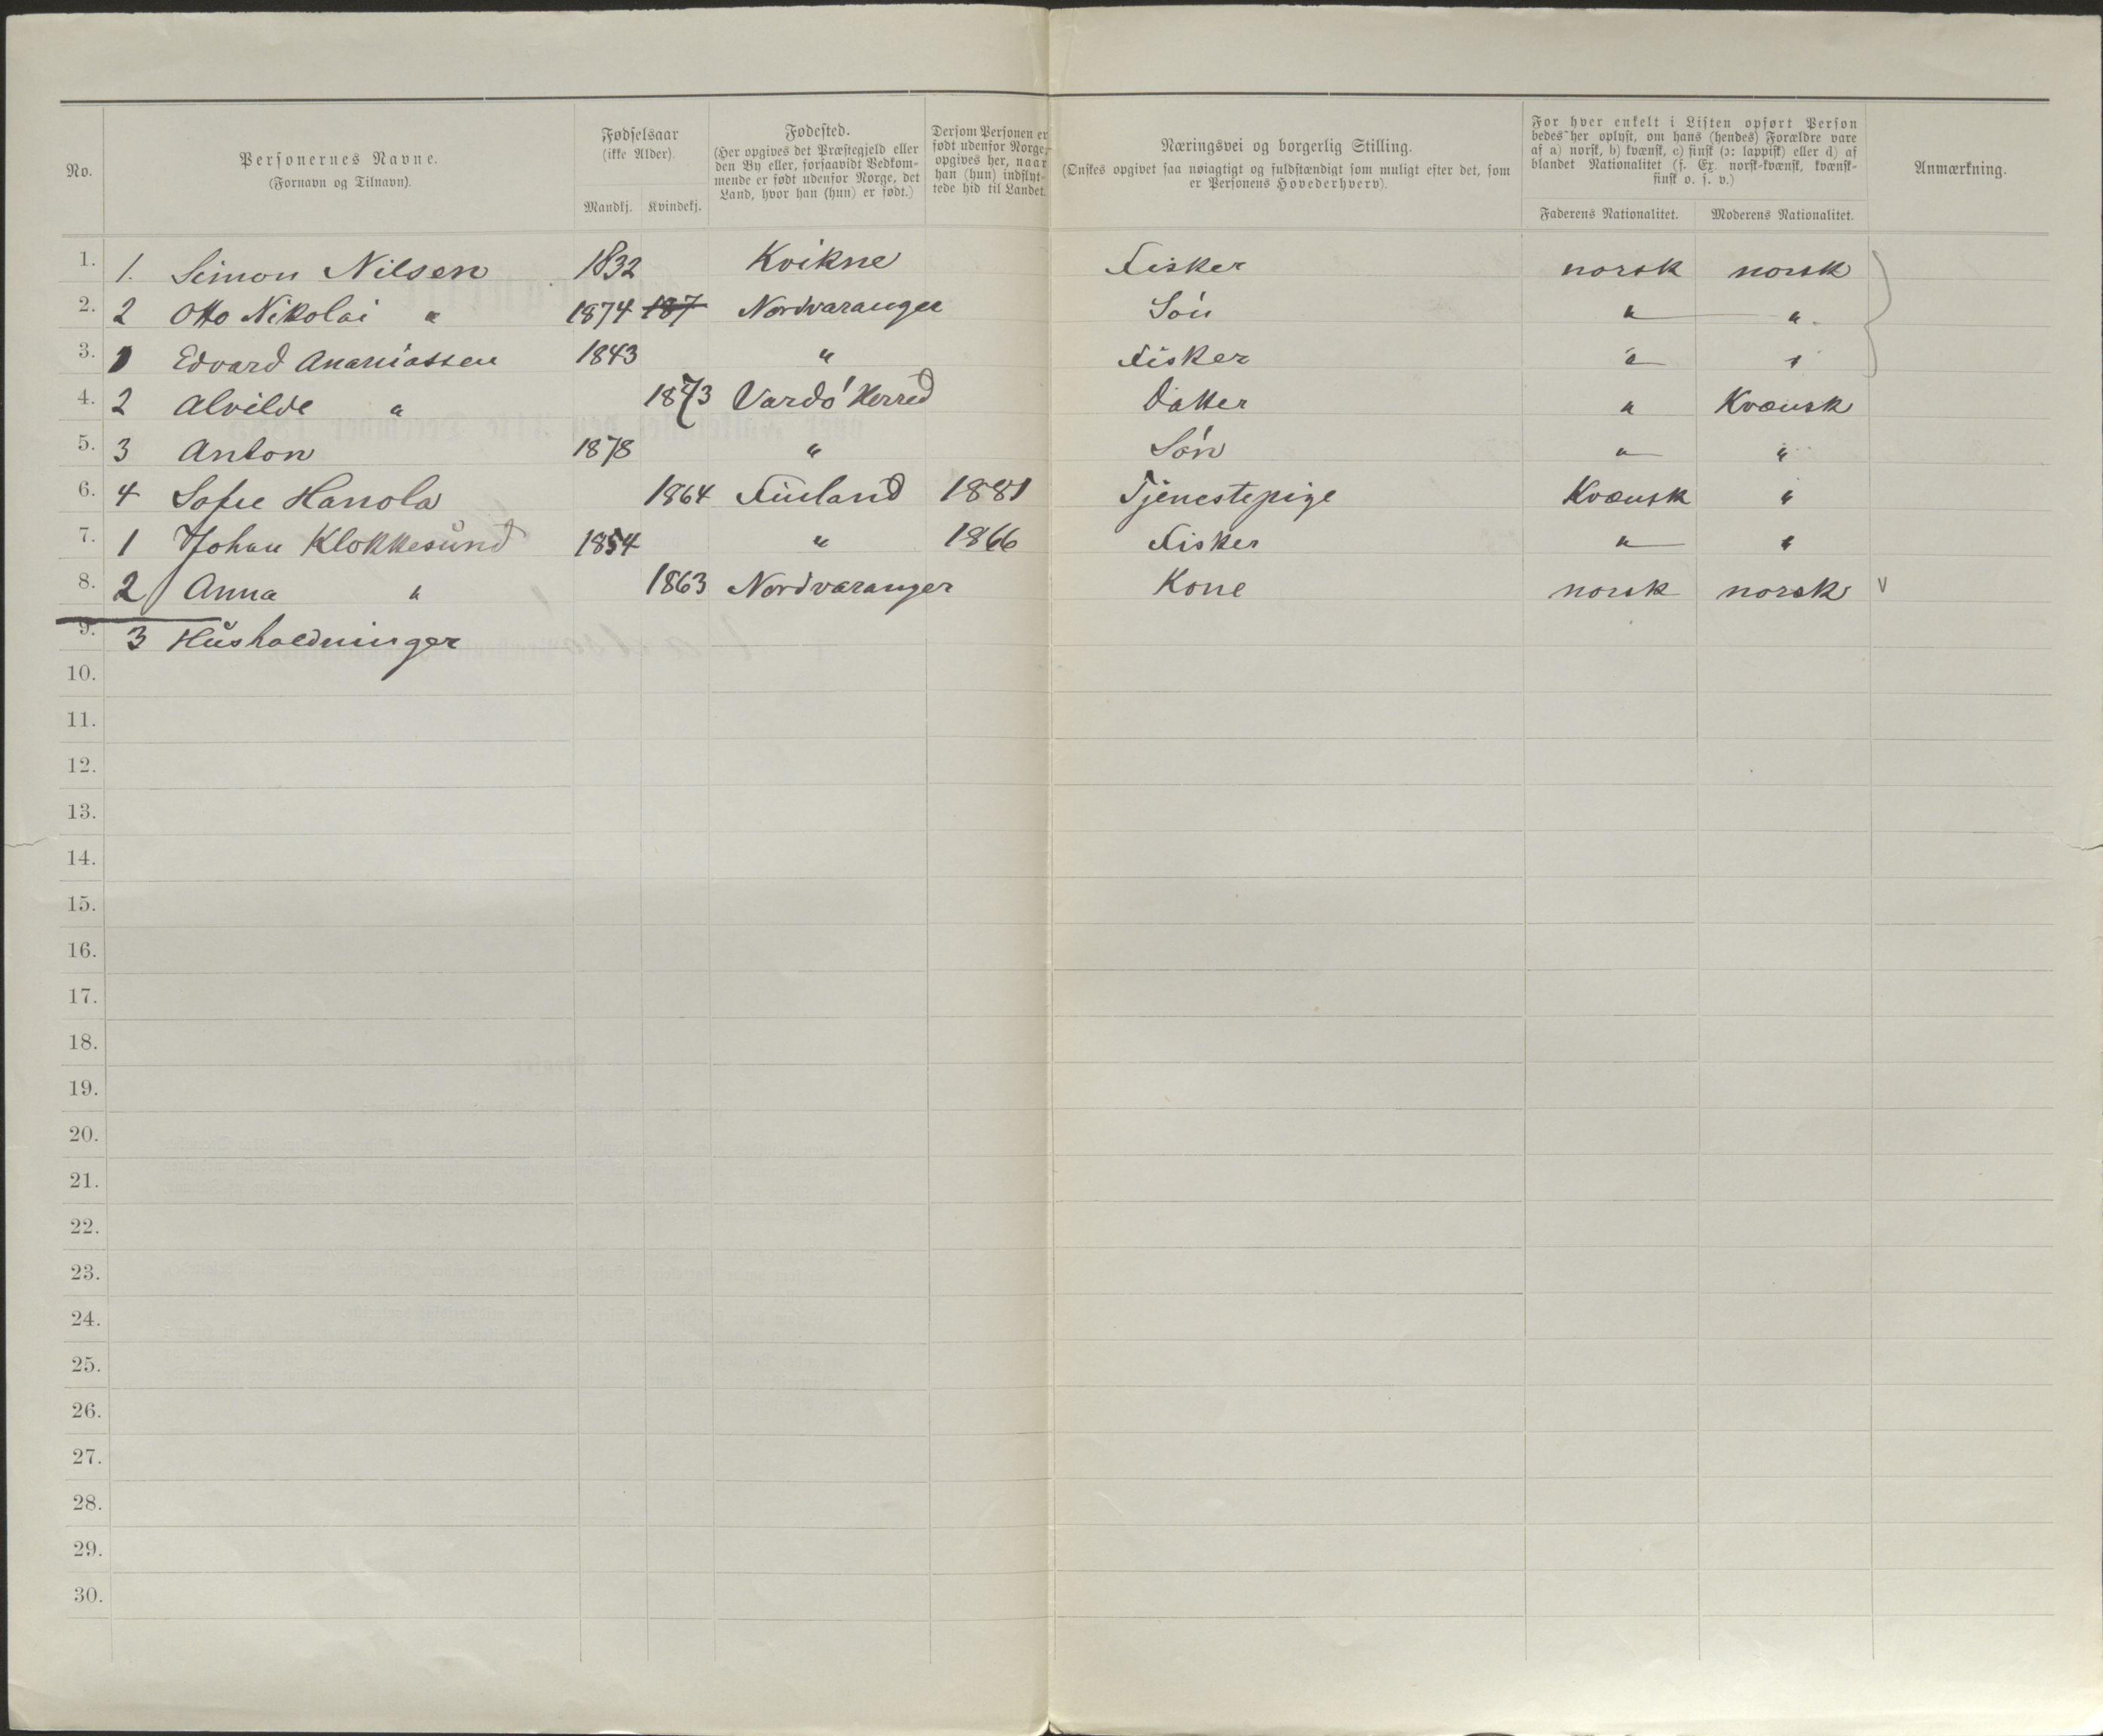 No.
Personernes Navne.
(Fornavn og Tilnavn).
Fødselsaar
(ikke Alder).
Mandkj. Kvindekj.
Fødested.
(Her opgives det Præstegjeld eller
den By eller, forsaavidt Vedkom-
mende er født udenfor Norge, det
Land, hvor han (hun) er født.)
Dersom Personen er
født udenfor Norge,
opgives her, naar
han (hun) indflyt-
tede hid til Landet.
Næringsvei og borgerlig Stilling.
(Ønskes opgivet saa nøiagtigt og fuldstændigt som muligt efter det, som
er Personens Hovederhverv).
For hver enkelt i Listen opført Person
bedes her oplyst, om hans (hendes) Forældre vare
af a) norsk, b) kvænsk, c) finsk (ɔ: lappisk) eller d) af
blandet Nationalitet (f. Ex. norsk-kvænsk, kvænsk-
finsk o. s. v.)
Faderens Nationalitet. Moderens Nationalitet.
Anmærkning.
1. 1. Simon Nilsen 1832 Kvikne Fisker norsk norsk
2. 2 Otto Nikolai " 1874 187 Nordvaranger Són " "
3. 1 Edvard Ananiassen 1843 " Fisker " "
4. 2 Alvilde " 1873 Vardó Herred Datter " Kvænsk
5. 3 Anton 1878 " Són " "
6. 4 Sofie Hanola 1864 Finland 1881 Tjenestepige Kvænsk "
7. 1 Johan Klokkesund 1854 " 1866 Fisker " "
8. 2 Anna " 1863 Nordvaranger Kone norsk norsk v
9. 3 Husholdninger
10.
11.
12.
13.
14.
15.
16.
17.
18.
19.
20.
21.
22.
23.
24.
25.
26.
27.
28.
29.
30.